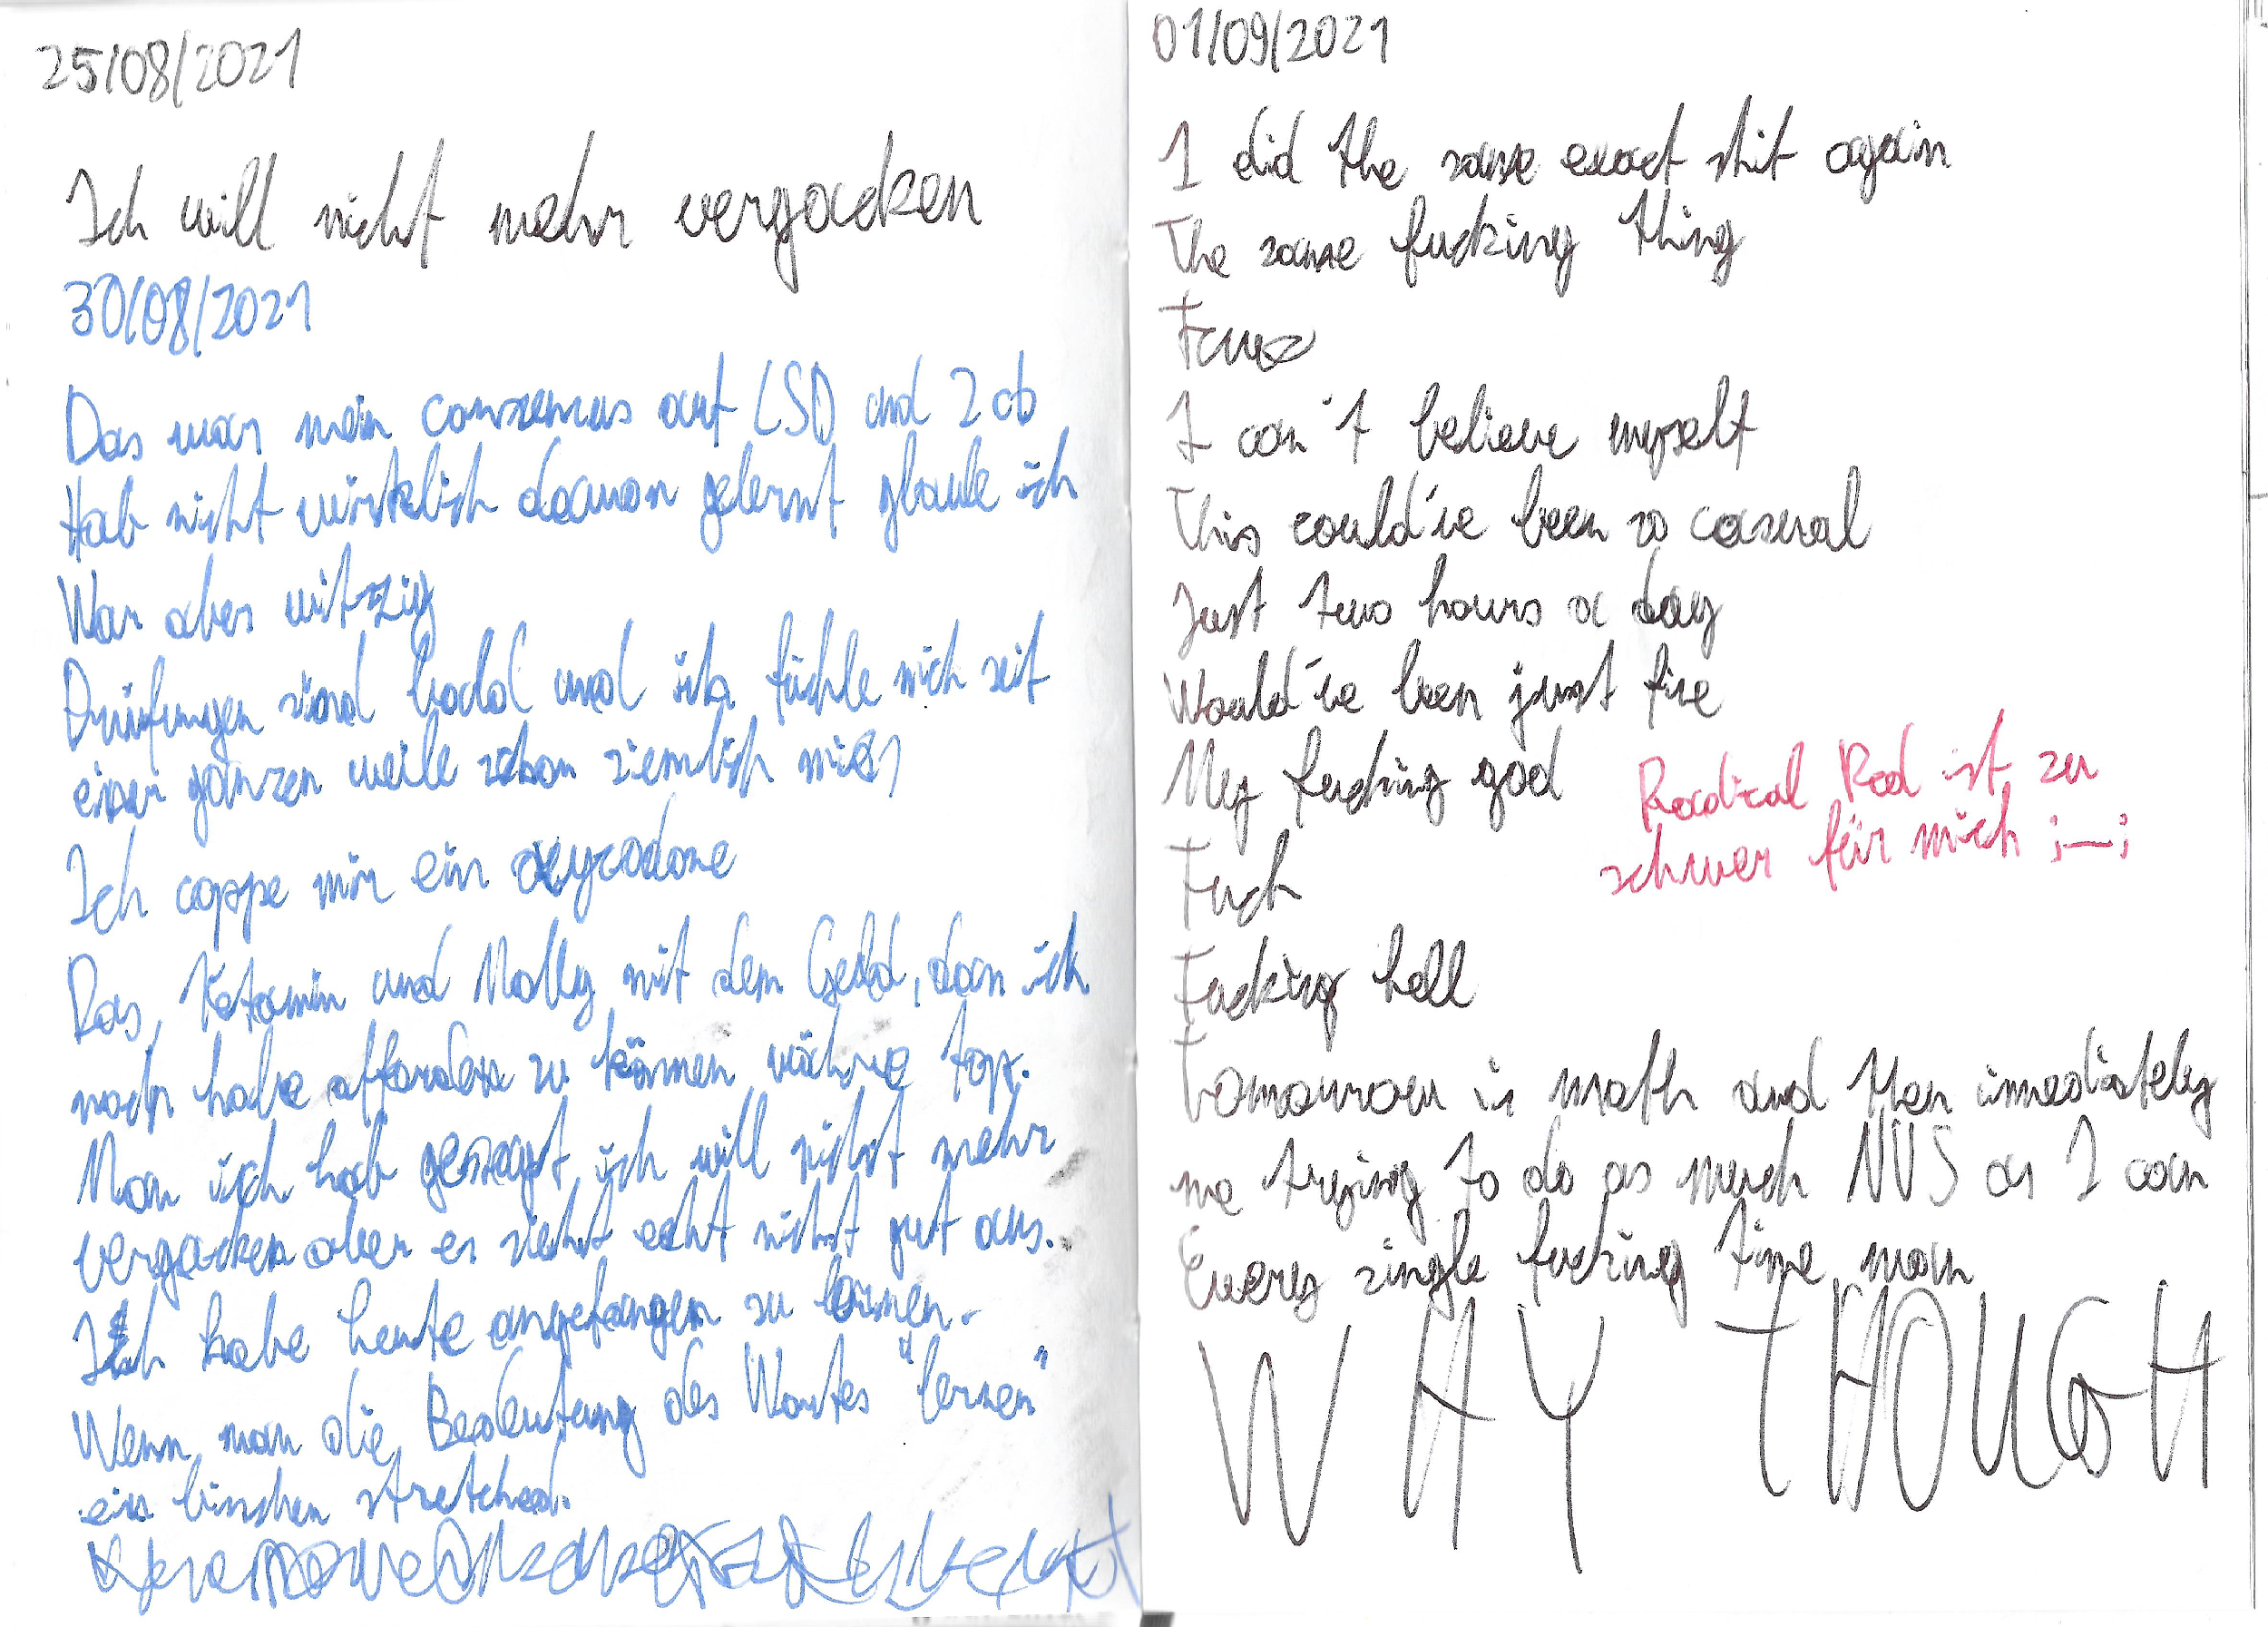 25/08/2021
Ich will nicht mehr vergacken
30/08/2021
Das war mein consensus auf LSD und 2 cb
Hab nicht wirklich davon gelernt glaube ich
War aber witzig
Prüfungen sind bald und ich fühle mich seit
einer ganzen weile schon ziemlich mies
Ich coppe mir ein oxycodone
Das, Ketamin und Molly mit dem Geld, dan ich
noch habe afforden zu können währe top.
Man ich hab gesagt ich will nicht mehr
vergacken aber es sieht echt nicht gut aus.
Ich habe heute angefangen zu lernen.
Wenn man die Bedeutung des Wortes "lernen"
ein bisschen stretched.
01/09/2021
I did the same exact shit again
The same fucking thing
I can't believe myself
This could've been so casual
Just two hours a day
Would've been just fine
My fucking god
Radical Red ist zu
schwer für mich ;—;
Fuck
Fucking hell
Tomourrow is math and then immediately
me trying to do as much NVS as I can
Every single fucking time man
WHY THOUGH